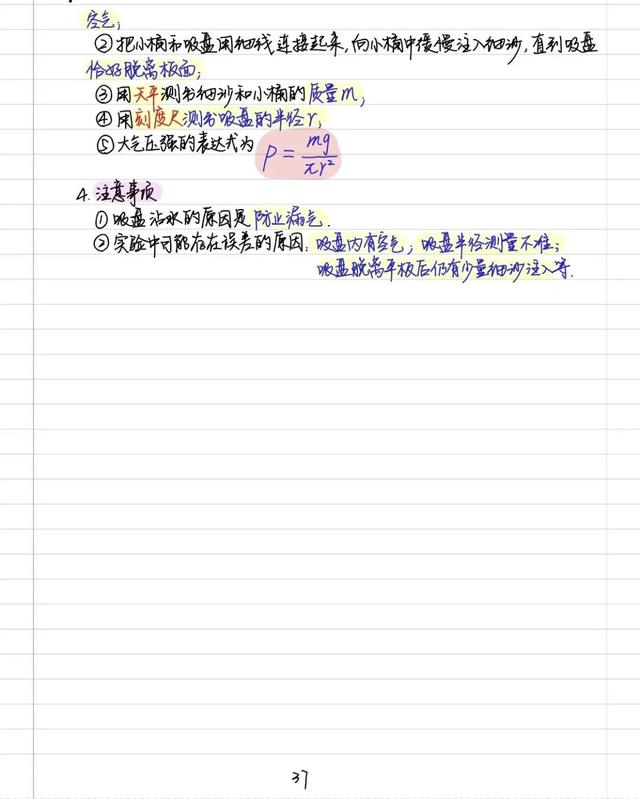 空气;
②把小桶和吸盘用细线连接起来,向小桶中缓慢注入细沙,直到吸盘
恰好脱离板面;
③用天平测出细沙和小桶的质量m;
④用刻度尺测出吸盘的半径r;
⑤大气压强的表达式为 p=mg/πr²
4. 注意事项
①吸盘沾水的原因是防止漏气.
②实验中可能存在误差的原因:吸盘内有空气;吸盘半径测量不准;
吸盘脱离平板后仍有少量细沙注入等.
37